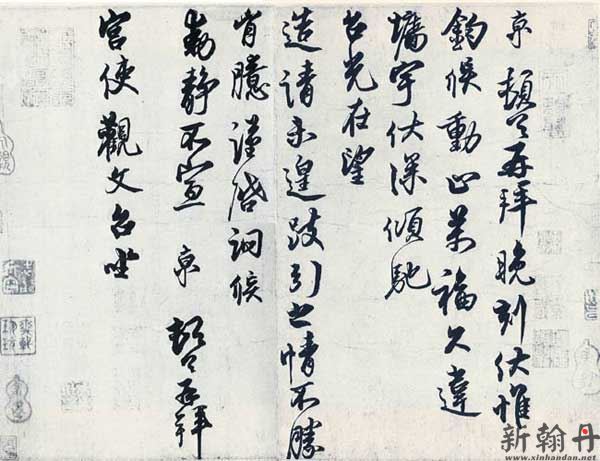 京頓首再拜晚刻伏惟
鈞候動止萬福久違
墉宇伏深傾馳
台光在望
造請未遑跂引之情不勝
胷臆謹啓詞候
動靜不宣京頓首再拜
宮使觀文台坐
新翰丹
www.xinhandan.net